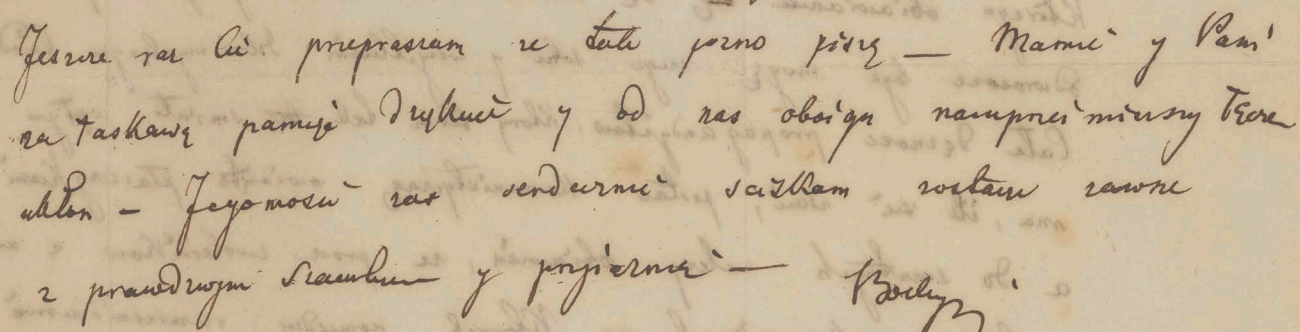 Jeszcze raz Cię przepraszam ze tak pozno piszę — Mamie y Pani
za łaskawą pamięć dziękuię y od nas oboiga nauprzeimieyszy łączę
ukłon — Jegomości zas serdecznie sciskam zostaię zawsze
z prawdziwym szacunkiem y przyiaznią —